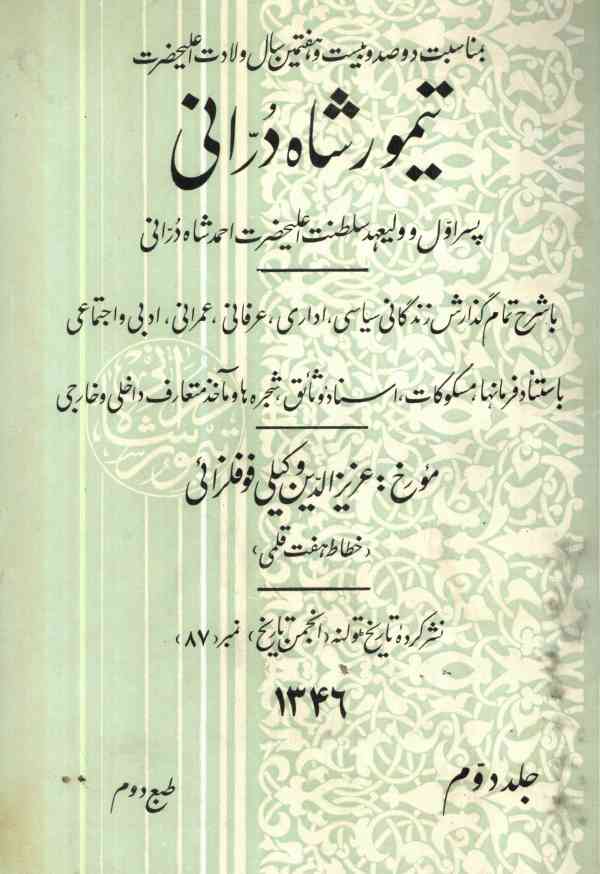 بمناسبت دوصد و بیست و هفتمین سال ولادت اعلیحضرت
تیمور شاه دُرّانی
پسر اوّل و ولیعهد سلطنت اعلیحضرت احمد شاه دُرّانی
با شرح تمام گذارش زندگانی سیاسی، اداری، عرفانی، عمرانی، ادبی و اجتماعی
با ستناد فرمانها، مسکوکات، اسناد و ثائق، شجره ها و مآخذ متعارف داخلی و خارجی
مؤرخ: عزیز الدّین وکیلی فوفلزائی
(خطاط هفت قلمی)
نشر کردهٔ تاریخ تولنه (انجمن تاریخ) نمبر (۸۷)
۱۳۴۶
جلد دوّم
طبع دوم